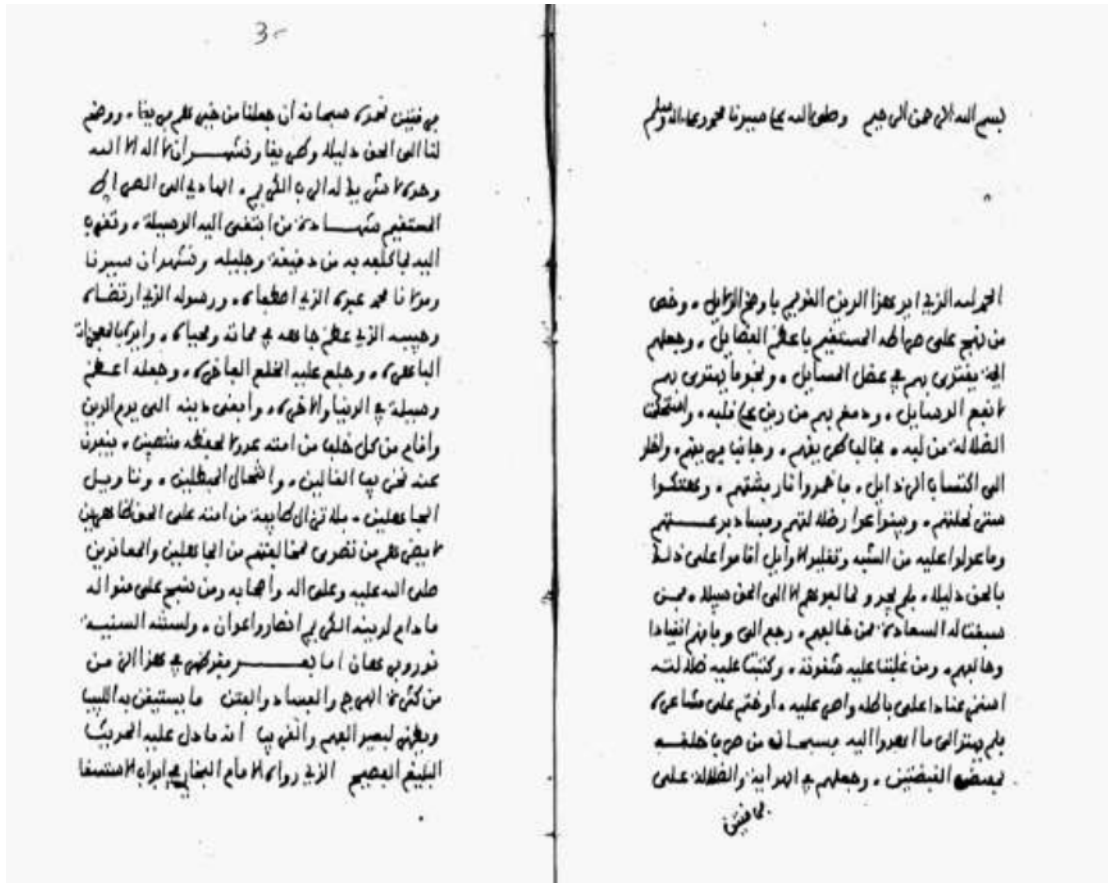 بسم الله الرحمن الرحيم وصلى الله على سيدنا محمد وعلى اله وسلم
الحمد لله الذي ايد هذا الدين القويم باوضح الدلايل . وخص
من نهج على صراطه المستقيم باعظم الفضايل . وجعلهم
يقتدى بهم في عضل المسايل . ونجوما يهتدى بهم
لانفع الوسايل . ودمغ بهم من رين على قلبه . واستحكمت
الضلالة من لبه . مخالبا طريقهم . وجانبا فريقهم . واخلد
الى اكتساب الرذايل . فاخمدوا نار . وهتكوا
ستر نحلتهم . وبينوا عوار ضلالتهم وفساد بدعـــتهم
وما عولوا عليه من الشبه وتقليد الاوايل اقاموا على ذلك
بالحق دليلا . فلم يجد مخالبوهم الا الى الحق سبيلا . فمن
سبقت له السعادة ممن خالفهم . رجع الى وفاقهم انقيادا
وحالفهم . ومن غلبت عليه شقوته . وكتبت عليه ضلالته
استمر عنادا على باطله واصر عليه . اوختم على مشاعره
فلم يهتد الى ما اهدوا اليه فسبحانه من صرف خلقه
بحسب القبضتين . وجعلهم في الهداية والضلالة على
فرقتين
3
فرقتين نحمده سبحانه ان جعلنا من خيرهم فريقا . ووضح
لنا الى الحق دليلا وطريقا ونشهـــد ان لا اله الا الله
وحده لا شريك له الرب الكريم . الهادي الى الصراط
المستقيم شهـــادة من ابتغى اليه الوسيلة . وتقرب
اليه بما كلفه به من دقيقة وجليله ونشهد ان سيدنا
ومولانا محمد عبده الذي اصطفاه . ورسوله الذي ارتضاه
وحبيبه الذي عظم جاهه في مماته ومحياه . وايده بالمعجزات
الباهره . وخلع عليه الخلع الفاخره . وجعله اعظم
وسيلة في الدنيا والاخره . وابقى دينه الى يوم الدين
واقام من كل خلف من امته عدولا لحفظه منتصبين . ينفون
عنه تحريف الغالين . وانتحال المبطلين . وتاويل
الجاهلين . فلا تزال طايفة من امته على الحق ظاهرين
لا يضرهم من تصدى لمخالفتهم من الجاهلين والمعاندين
صلى الله عليه وعلى اله واصحابه ومن نهج على منواله
ما دام لدينه الكريم انصار واعوان . ولسنته السنية
اما بعـــد فقد ظهر في هذا الزمن
من كثرة الهرج والفساد والفتن ما يستيقن به اللبيب
ويظهر لبصير الفهم والقريب انه ما دل عليه الحديث
البليغ الفصيح الذي رواه الامام البخاري في ابواب الاستسقا